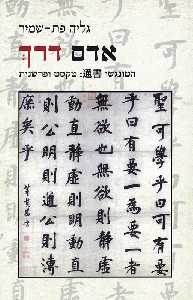 גליה פת-שמיר
אדם דרך
הטונגשו 通書: טקסט ופרשנות
聖可學乎曰可有要
乎曰有要一為要一者
無欲也無欲則靜虛
動直靜虛則明動直
則公明則通公則溥
庶矣乎